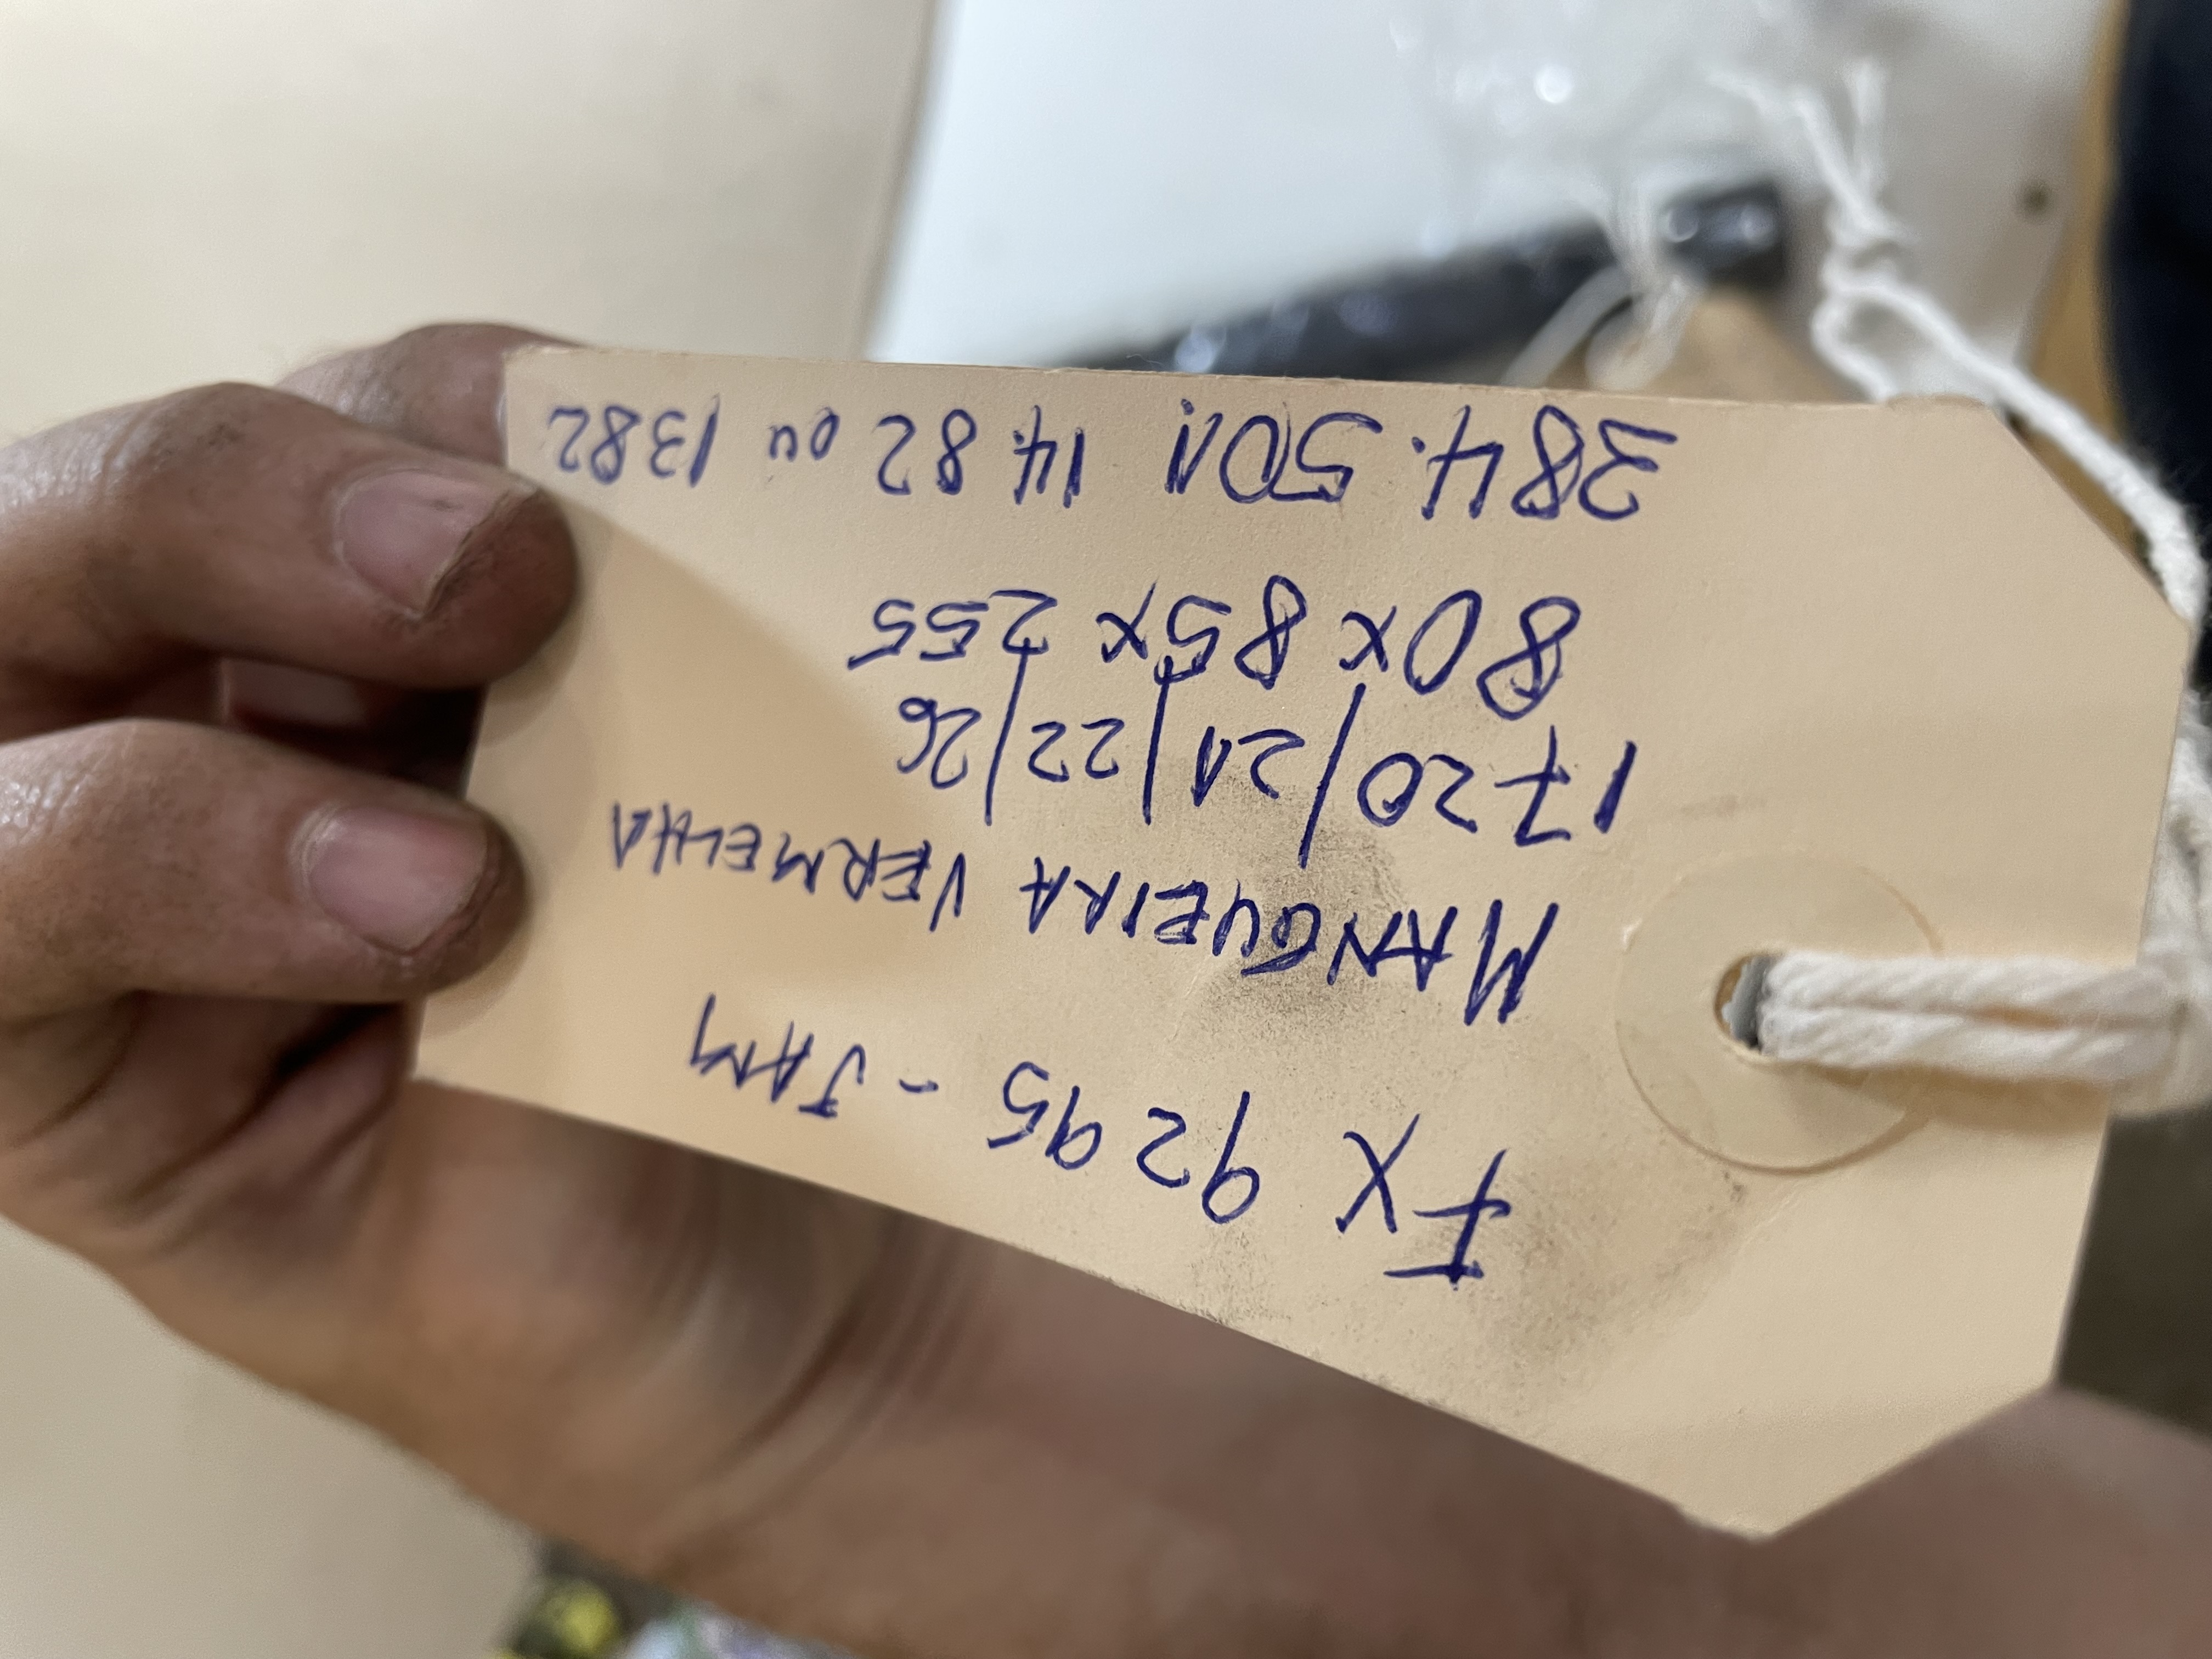 FX 9295 - JAM
MANGUEIRA VERMELHA
1720/21/22/26
80x85x255
384.501! 14.82 ou 1382